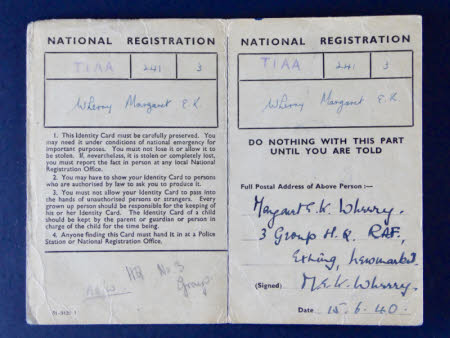 NATIONAL REGISTRATION
TIAA 241 3
Wherry Margaret E.K.
1. This Identity Card must be carefully preserved. You
may need it under conditions of national emergency for
important purposes. You must not lose it or allow it to
be stolen. If, nevertheless, it is stolen or completely lost,
you must report the fact in person at any local National
Registration Office.
2. You may have to show your Identity Card to persons
who are authorised by law to ask you to produce it.
3. You must not allow your Identity Card to pass into
the hands of unauthorised persons or strangers. Every
grown up person should be responsible for the keeping of
his or her Identity Card. The Identity Card of a child
should be kept by the parent or guardian or person in
charge of the child for the time being.
4. Anyone finding this Card must hand it in at a Police
Station or National Registration Office.
HQ No. 3
Group
NATIONAL REGISTRATION
TIAA 241 3
Wherry Margaret E.K.
DO NOTHING WITH THIS PART
UNTIL YOU ARE TOLD
Full Postal Address of Above Person :—
Margaret E.K. Wherry.
3 Group H.Q. RAF,
Exning, Newmarket.
(Signed) M.E.K. Wherry.
Date 15.6.40.